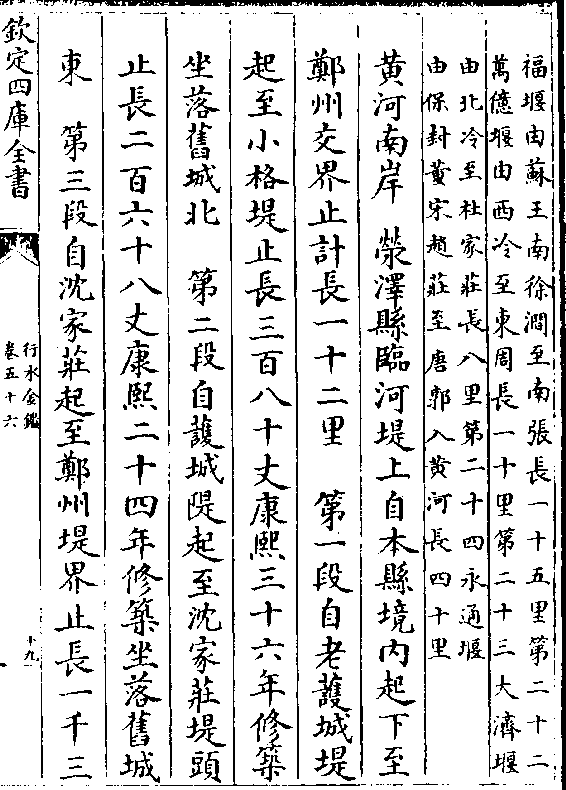 福堰由蘇王南徐澗至南張長一十五里第二十二
萬億堰由西冷至東周長一十里第二十三大濟堰
由北冷至杜家莊長八里第二十四永通堰
由保封黄宋趙莊至唐郭入黄河長四十里
黄河南岸　滎澤縣臨河堤上自本縣境内起下至
鄭州交界止計長一十二里　第一段自老護城堤
起至小格堤止長三百八十丈康熙三十六年修築
坐落舊城北　第二段自護城隄起至沈家莊堤頭
止長二百六十八丈康熙二十四年修築坐落舊城
東　第三段自沈家莊起至鄭州堤界止長一千三
欽定四庫全書
行水金鑑
卷五十六
十九